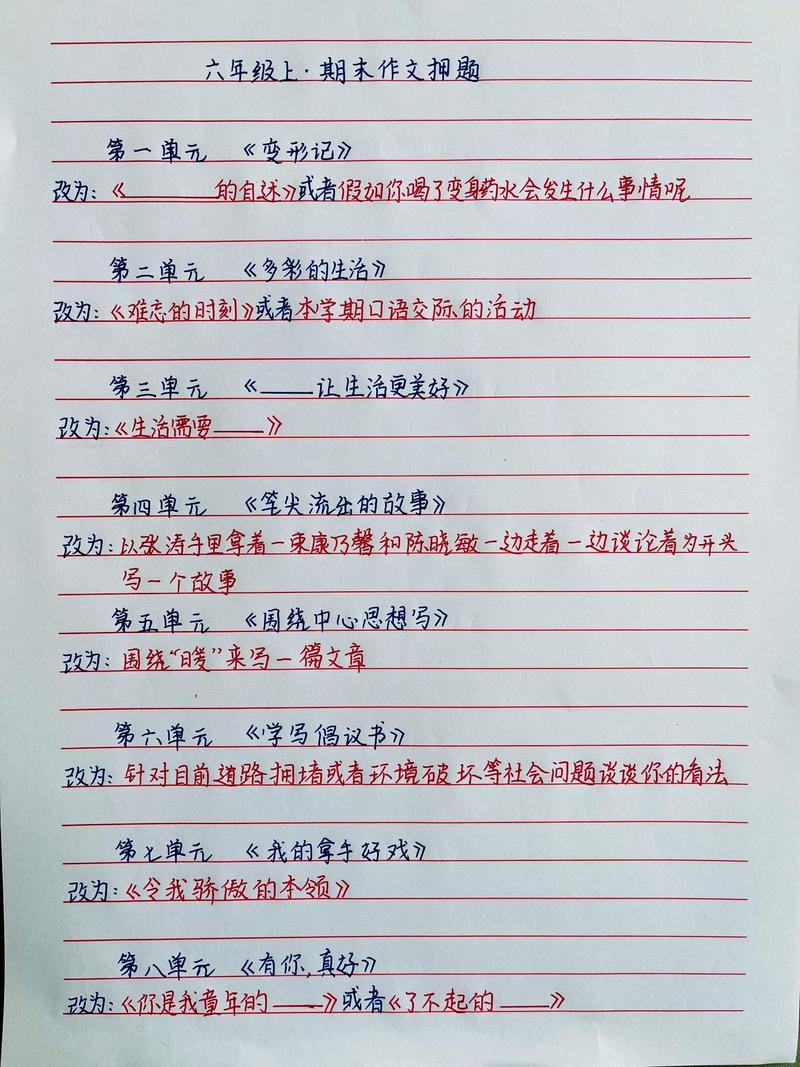 六年级上·期末作文押题
第一单元 《变形记》
改为:《______的自述》或者假如你喝了变身药水会发生什么事情呢
第二单元 《多彩的生活》
改为:《难忘的时刻》或者本学期口语交际的活动
第三单元 《____让生活更美好》
改为:《生活需要____》
第四单元 《笔尖流出的故事》
改为:以张涛手里拿着一束康乃馨和陈晓敏一边走着一边谈论着为开头
写一个故事
第五单元 《围绕中心思想写》
改为:围绕“暖”来写一篇文章
第六单元 《学写倡议书》
改为:针对目前道路拥堵或者环境破坏等社会问题谈谈你的看法
第七单元 《我的拿手好戏》
改为:《令我骄傲的本领》
第八单元 《有你,真好》
改为:《你是我童年的____》或者《了不起的____》